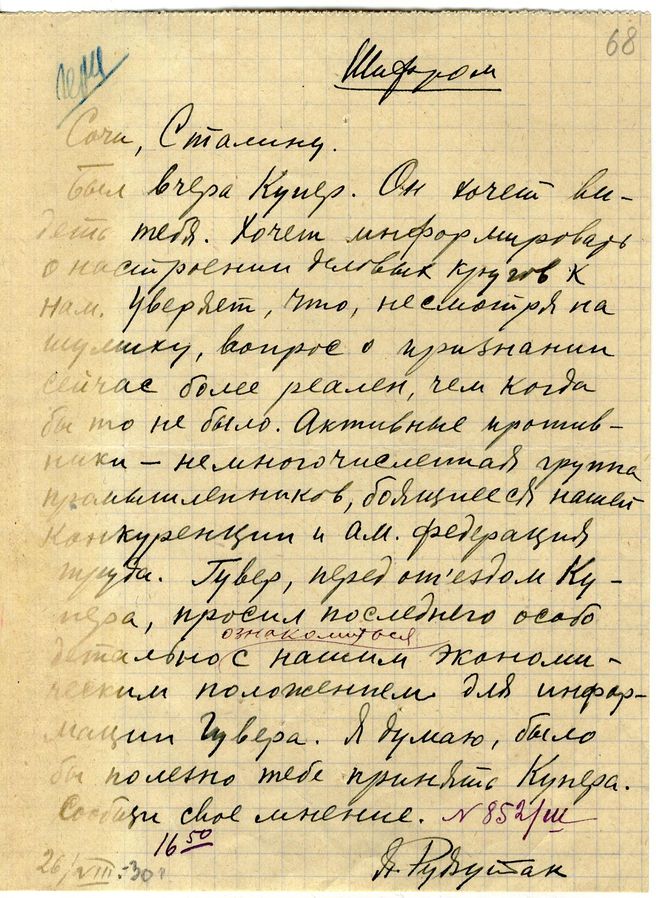 68
Шифром
Сочи, Сталину.
Был вчера Купер. Он хочет ви-
деть тебя. Хочет информировать
о настроении деловых кругов к
нам. Уверяет, что, несмотря на
шумиху, вопрос о признании
сейчас более реален, чем когда
бы то не было. Активные против-
ники – немногочисленная группа
промышленников, боящиеся нашей
конкуренции и ам. федерация
труда. Гувер, перед от'ездом Ку-
пера, просил последнего особо
ознакомиться
детально с нашим экономи-
ческим положением для инфор-
мации Гувера. Я думаю, было
бы полезно тебе принять Купера.
Сообщи свое мнение. N 852/ш
16 50
26/VIII.-30г
Я. Рудзутак